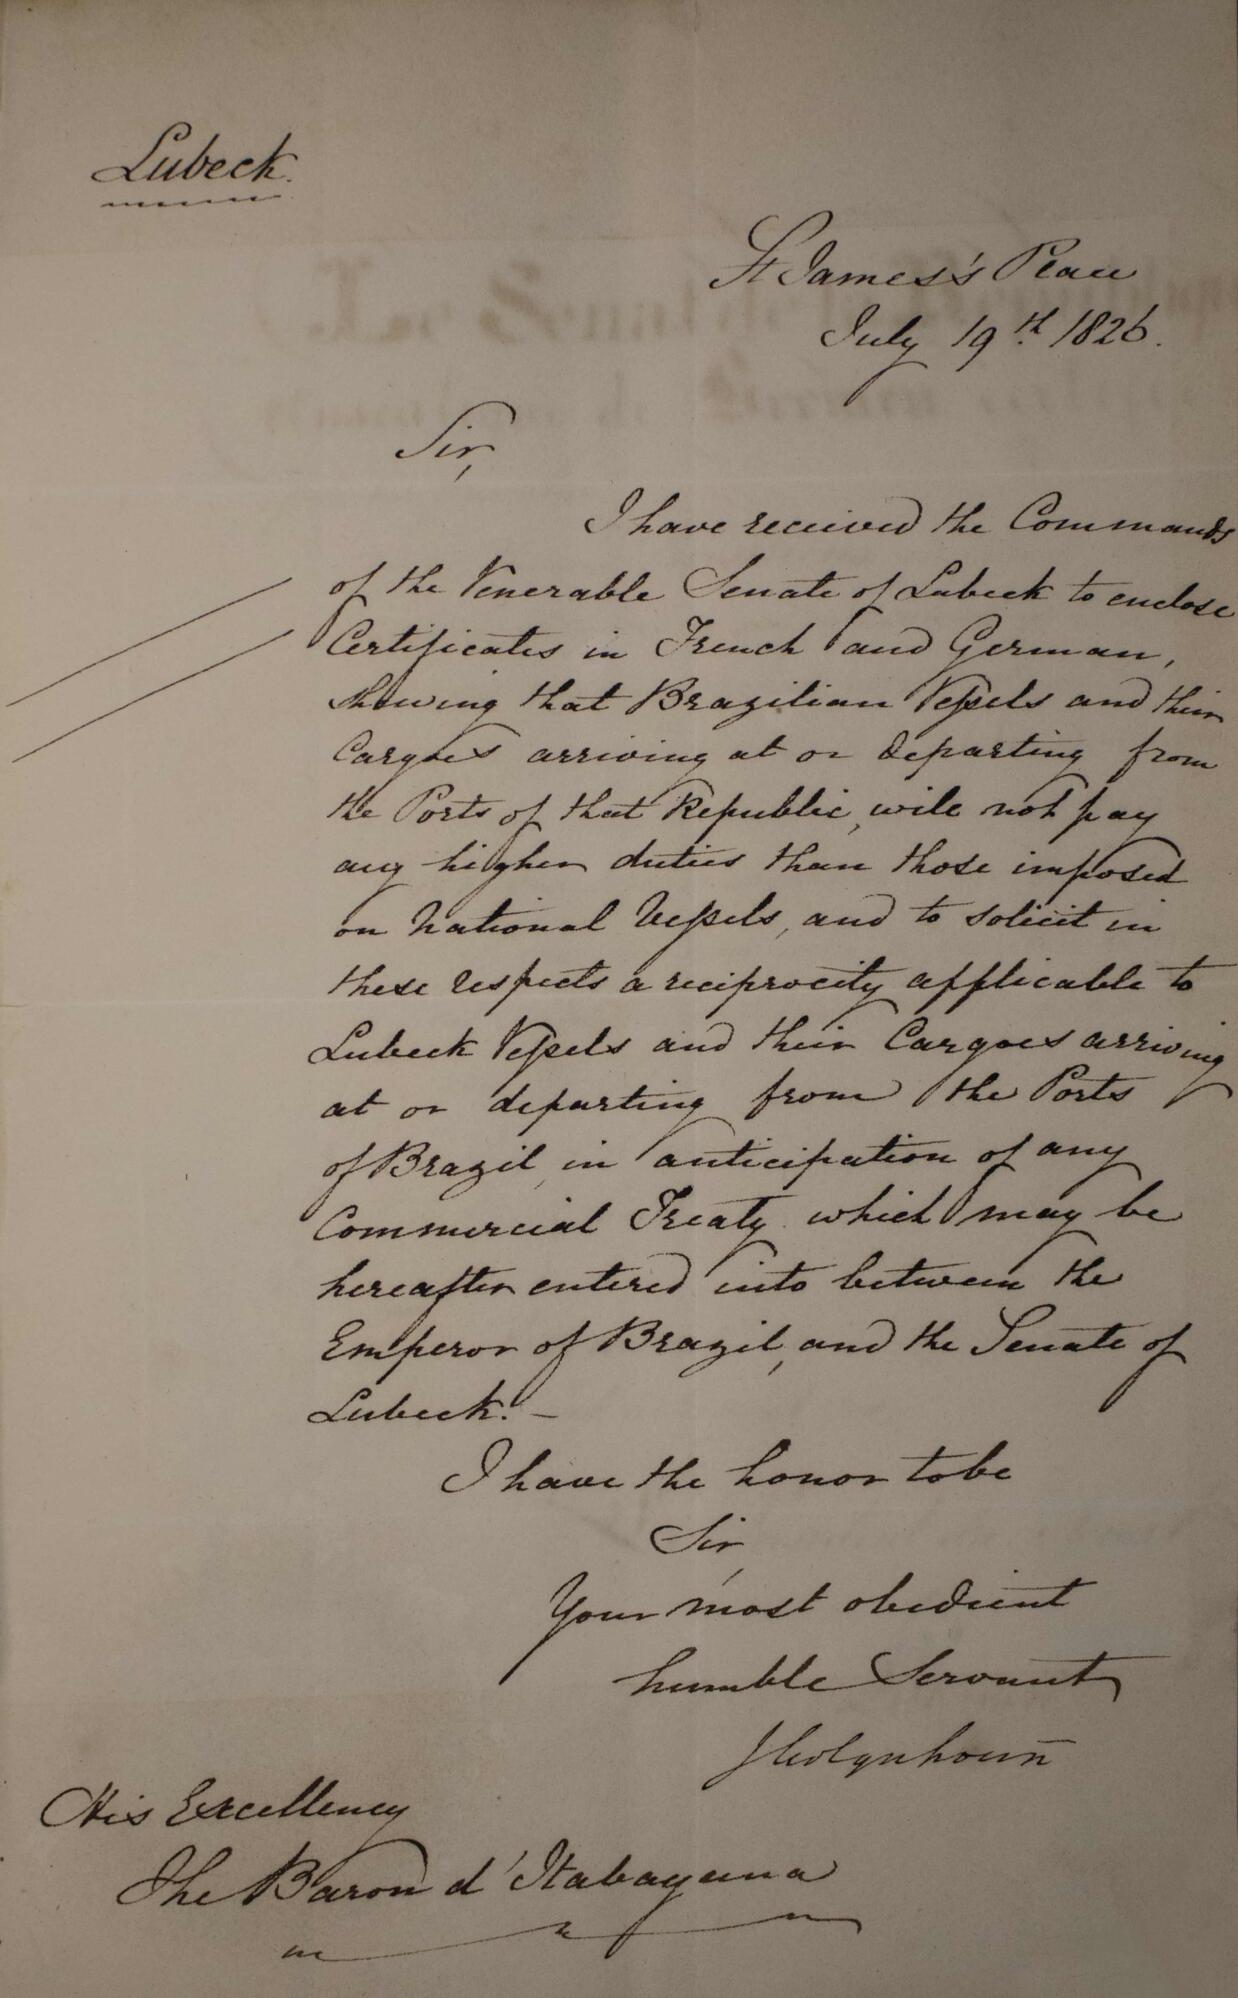 Lubeck.
St James's Place
July 19th 1826.
Sir,
I have received the Commands
of the Venerable Senate of Lubeck to enclose
Certificates in French and German,
shewing that Brazilian Vessels and their
Cargoes arriving at or departing from
the Ports of that Republic, will not pay
any higher duties than those imposed
on National Vessels, and to solicit in
these respects a reciprocity applicable to
Lubeck Vessels and their Cargoes arriving
at or departing from the Ports
of Brazil, in anticipation of any
Commercial Treaty which may be
hereafter entered into between the
Emperor of Brazil, and the Senate of
Lubeck. –
I have the honor to be
Sir,
Your most obedient
humble Servant
J Colquhoun
His Excellency
The Baron d'Itabayana